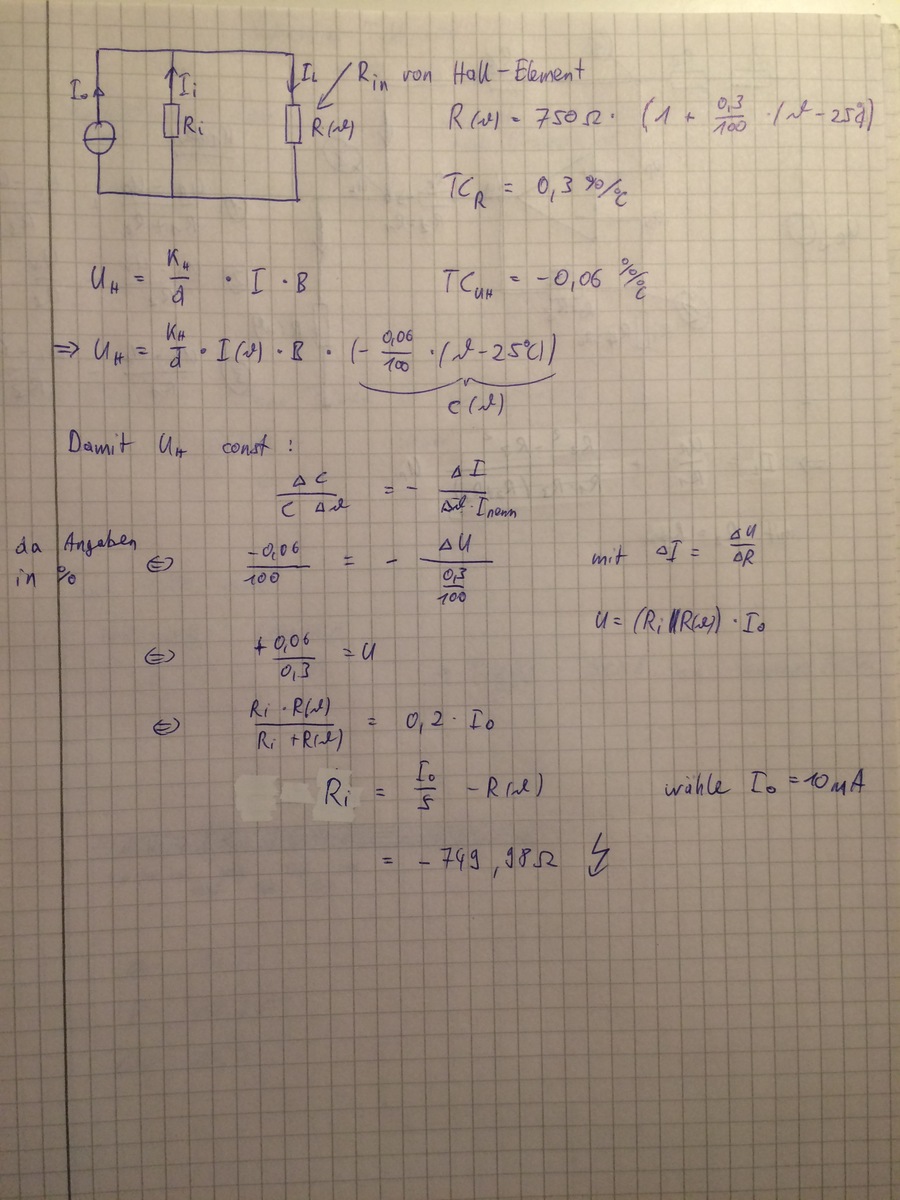 I₀ Iᵢ Rᵢ I_L R(ϑ) R_in von Hall-Element
R(ϑ) = 750Ω · (1 + 0,3/100 · (ϑ - 25°C))
TC_R = 0,3 %/°C
U_H = K_H/d · I · B TC_UH = -0,06 %/°C
⇒ U_H = K_H/d · I(ϑ) · B · (- 0,06/100 · (ϑ - 25°C))
C(ϑ)
Damit U_H const :
ΔC/(C Δϑ) = - ΔI/(Δϑ · I_nenn)
da Angaben in % ⇔ -0,06/100 = - ΔU/(0,3/100) mit ΔI = ΔU/ΔR
U = (Rᵢ ∥ R(ϑ)) · I₀
⇔ +0,06/0,3 = U
⇔ (Rᵢ · R(ϑ))/(Rᵢ + R(ϑ)) = 0,2 · I₀
Rᵢ = I₀/5 - R(ϑ) wähle I₀ = 10mA
= - 749,98Ω ↯